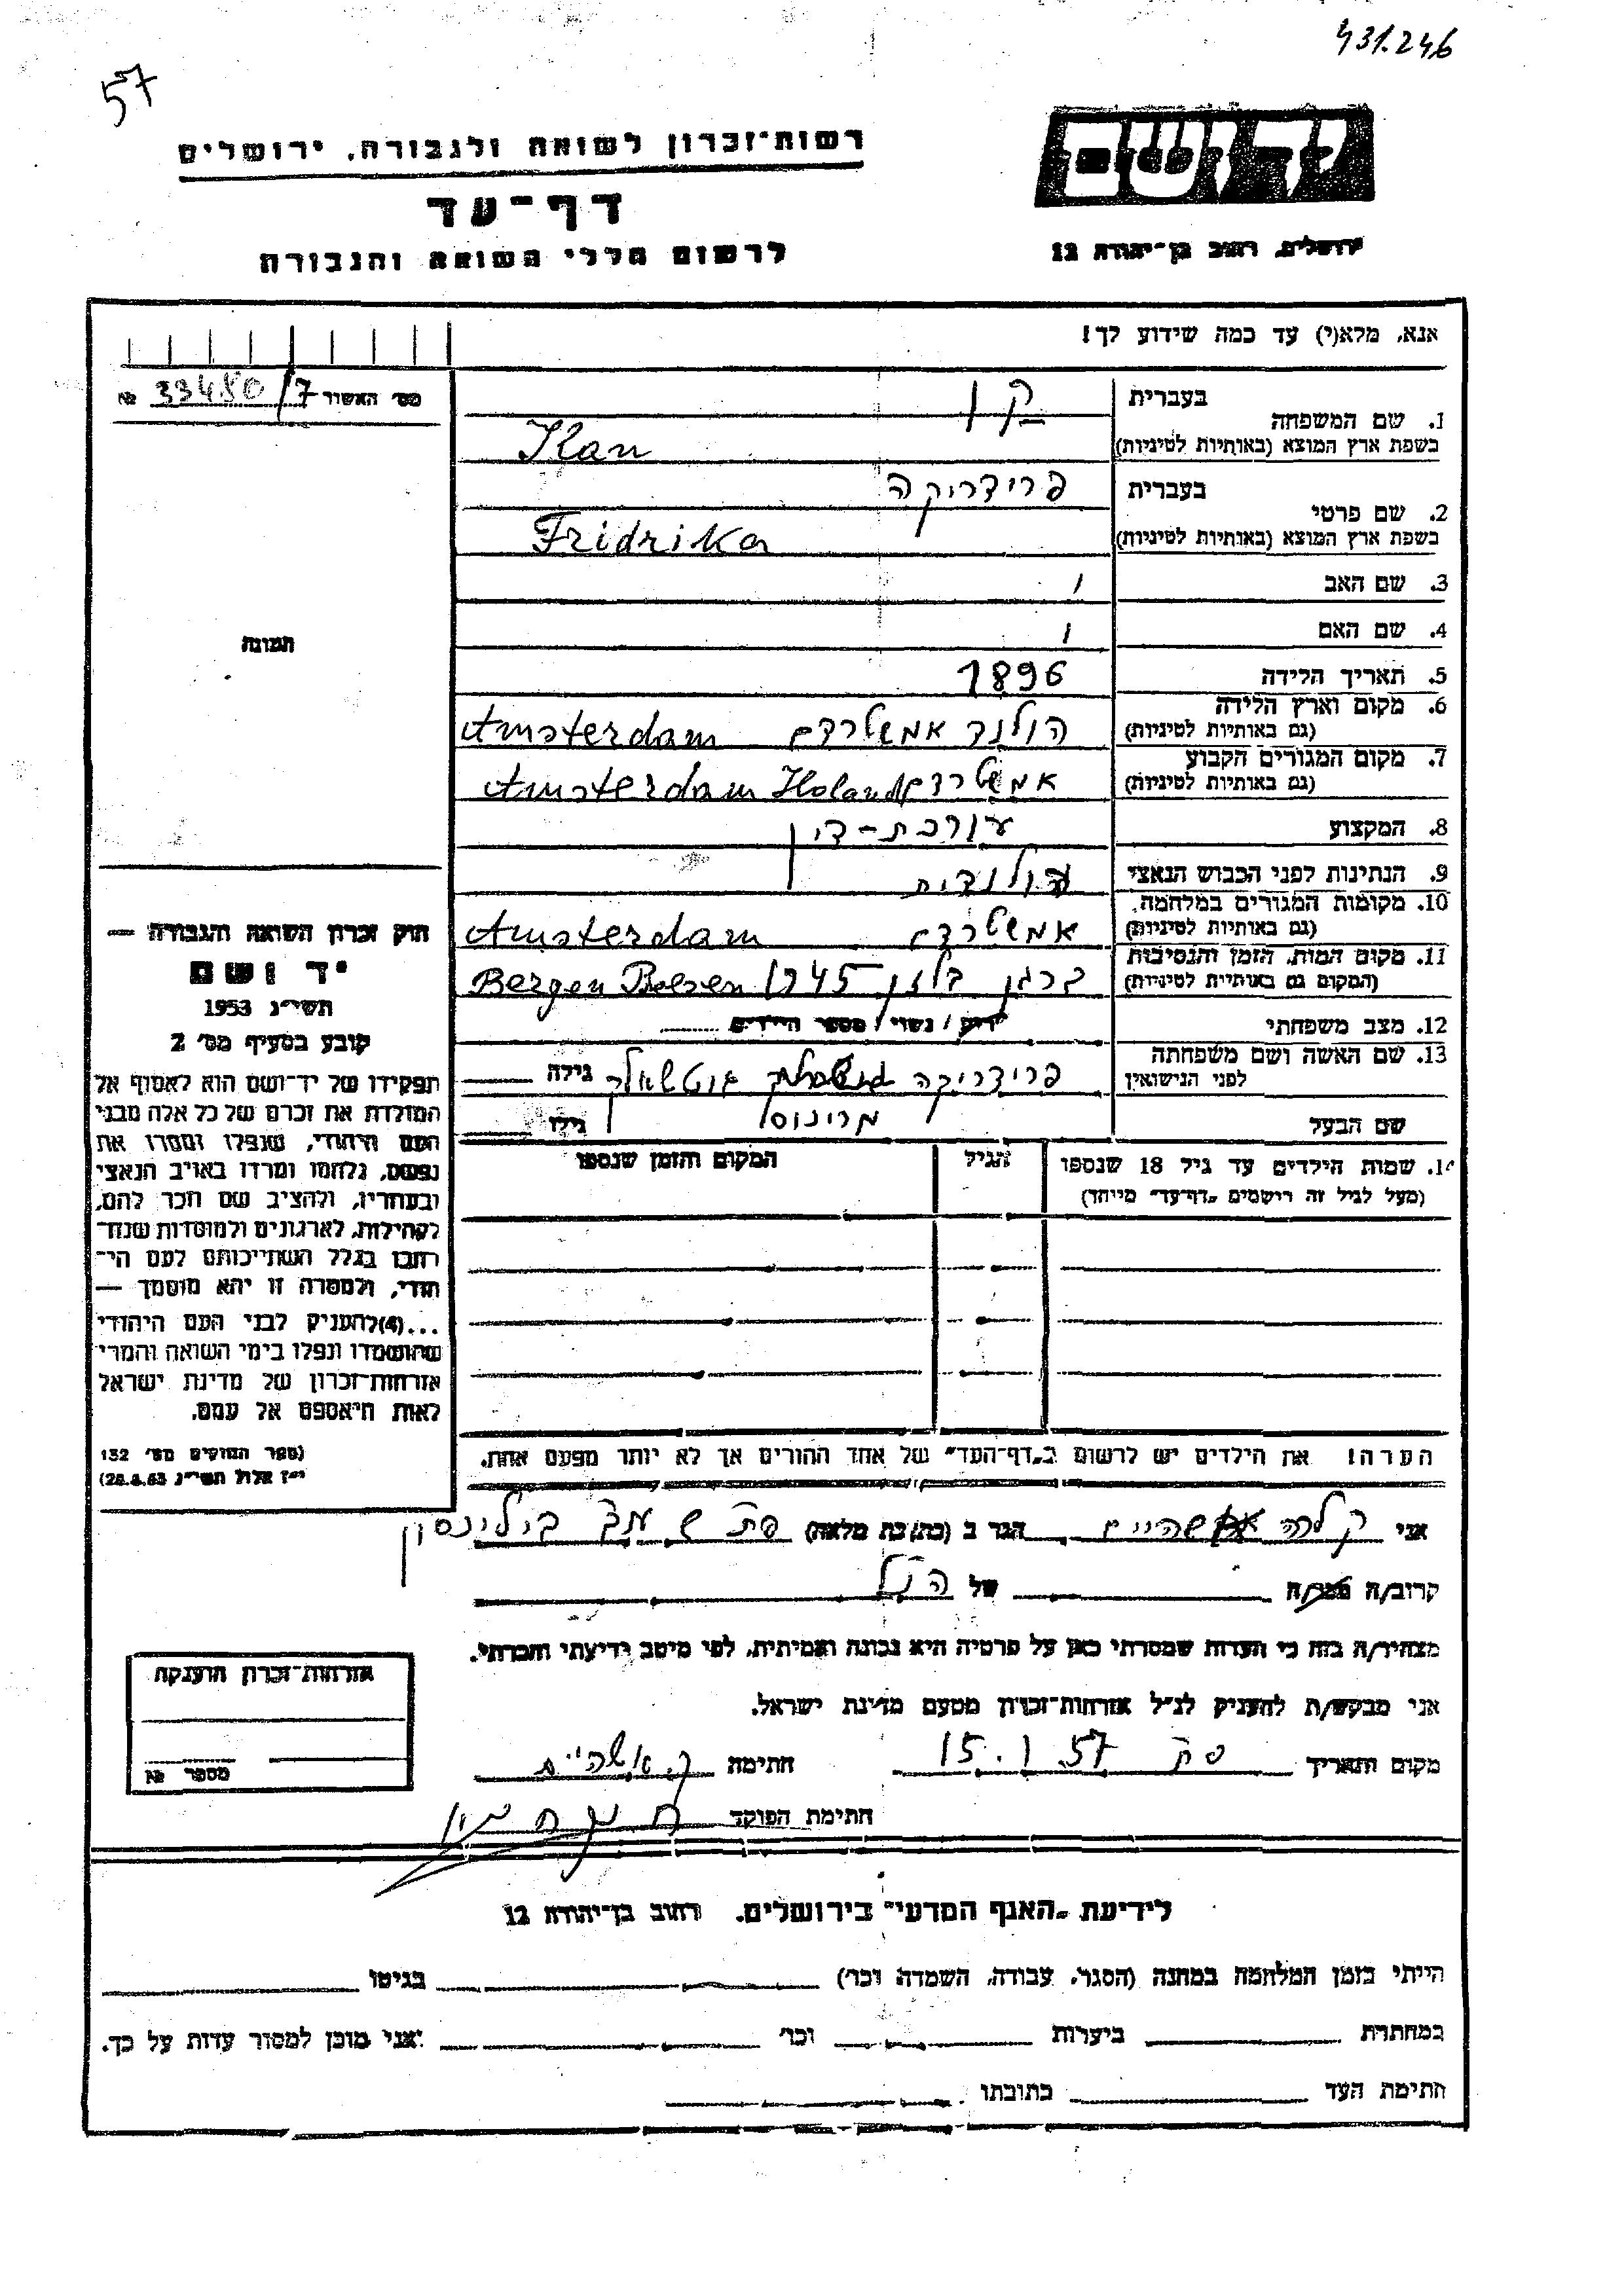 431.246
57
רשות־זכרון לשואה ולגבורה, ירושלים
יד ושם
דף־עד
ירושלים, רחוב בן־יהודה 12
לרשום חללי השואה והגבורה
אנא, מלא(י) עד כמה שידוע לך!
מס׳ האשור 33480/7 №
1. שם המשפחה
בעברית קן
בשפת ארץ המוצא (באותיות לטיניות) Kan
2. שם פרטי
בעברית פרידריקה
בשפת ארץ המוצא (באותיות לטיניות) Fridrika
3. שם האב /
4. שם האם /
תמונה
5. תאריך הלידה 1896
6. מקום וארץ הלידה
(גם באותיות לטיניות) הולנד אמשטרדם Amsterdam
7. מקום המגורים הקבוע
(גם באותיות לטיניות) אמשטרדם Amsterdam Holand
8. המקצוע עורכת-דין
9. הנתינות לפני הכבוש הנאצי הולנדית
10. מקומות המגורים במלחמה
(גם באותיות לטיניות) אמשטרדם Amsterdam
11. מקום המות, הזמן והנסיבות
(המקום גם באותיות לטיניות) ברגן בלזן 1945 Bergen Belsen
12. מצב משפחתי / נשוי / מספר הילדים
13. שם האשה ושם משפחתה
לפני הנישואין פרידריקה גוטשאלק גילה
שם הבעל מרינוס גילו
14. שמות הילדים עד גיל 18 שנספו
(מעל לגיל זה רישמים „דף־עד״ מיוחד)
הגיל
המקום והזמן שנספו
חוק זכרון השואה והגבורה —
יד ושם
תשי״ג 1953
קובע בסעיף מס׳ 2
תפקידו של יד־ושם הוא לאסוף אל
המולדת את זכרם של כל אלה מבני
העם היהודי, שנפלו ומסרו את
נפשם, נלחמו ומרדו באויב הנאצי
ובעוזריו, ולהציב שם וזכר להם,
לקהילות, לארגונים ולמוסדות שנח־
רבו בגלל השתייכותם לעם הי־
הודי, ולמטרה זו יהא מוסמך —
...(4) להעניק לבני העם היהודי
שהושמדו ונפלו בימי השואה והמרי
אזרחות־זכרון של מדינת ישראל
לאות היאספם אל עמם.
(ספר החוקים מס׳ 132
י״ז אלול תשי״ג 28.8.53)
הערה! את הילדים יש לרשום ב„דף־העד״ של אחד ההורים אך לא יותר מפעם אחת.
אני קלרה אשהיים הגר ב (כתובת מלאה) פת ש עב בילינסון
קרוב/ה מכר/ה של הנ״ל
מצהיר/ה בזה כי העדות שמסרתי כאן על פרטיה היא נכונה ואמיתית, לפי מיטב ידיעתי והכרתי.
אני מבקש/ת להעניק לנ״ל אזרחות־זכרון מטעם מדינת ישראל.
מקום ותאריך פת 15.1.57 חתימה ק. אשהיים
חתימת הפוקד
אזרחות־זכרון הוענקה
מספר №
לידיעת „האגף המדעי״ בירושלים, רחוב בן־יהודה 12
הייתי בזמן המלחמה במחנה (הסגר, עבודה, השמדה וכו׳) בגיטו
במחתרת ביערות וכו׳ אני מוכן למסור עדות על כך.
חתימת העד כתובתו